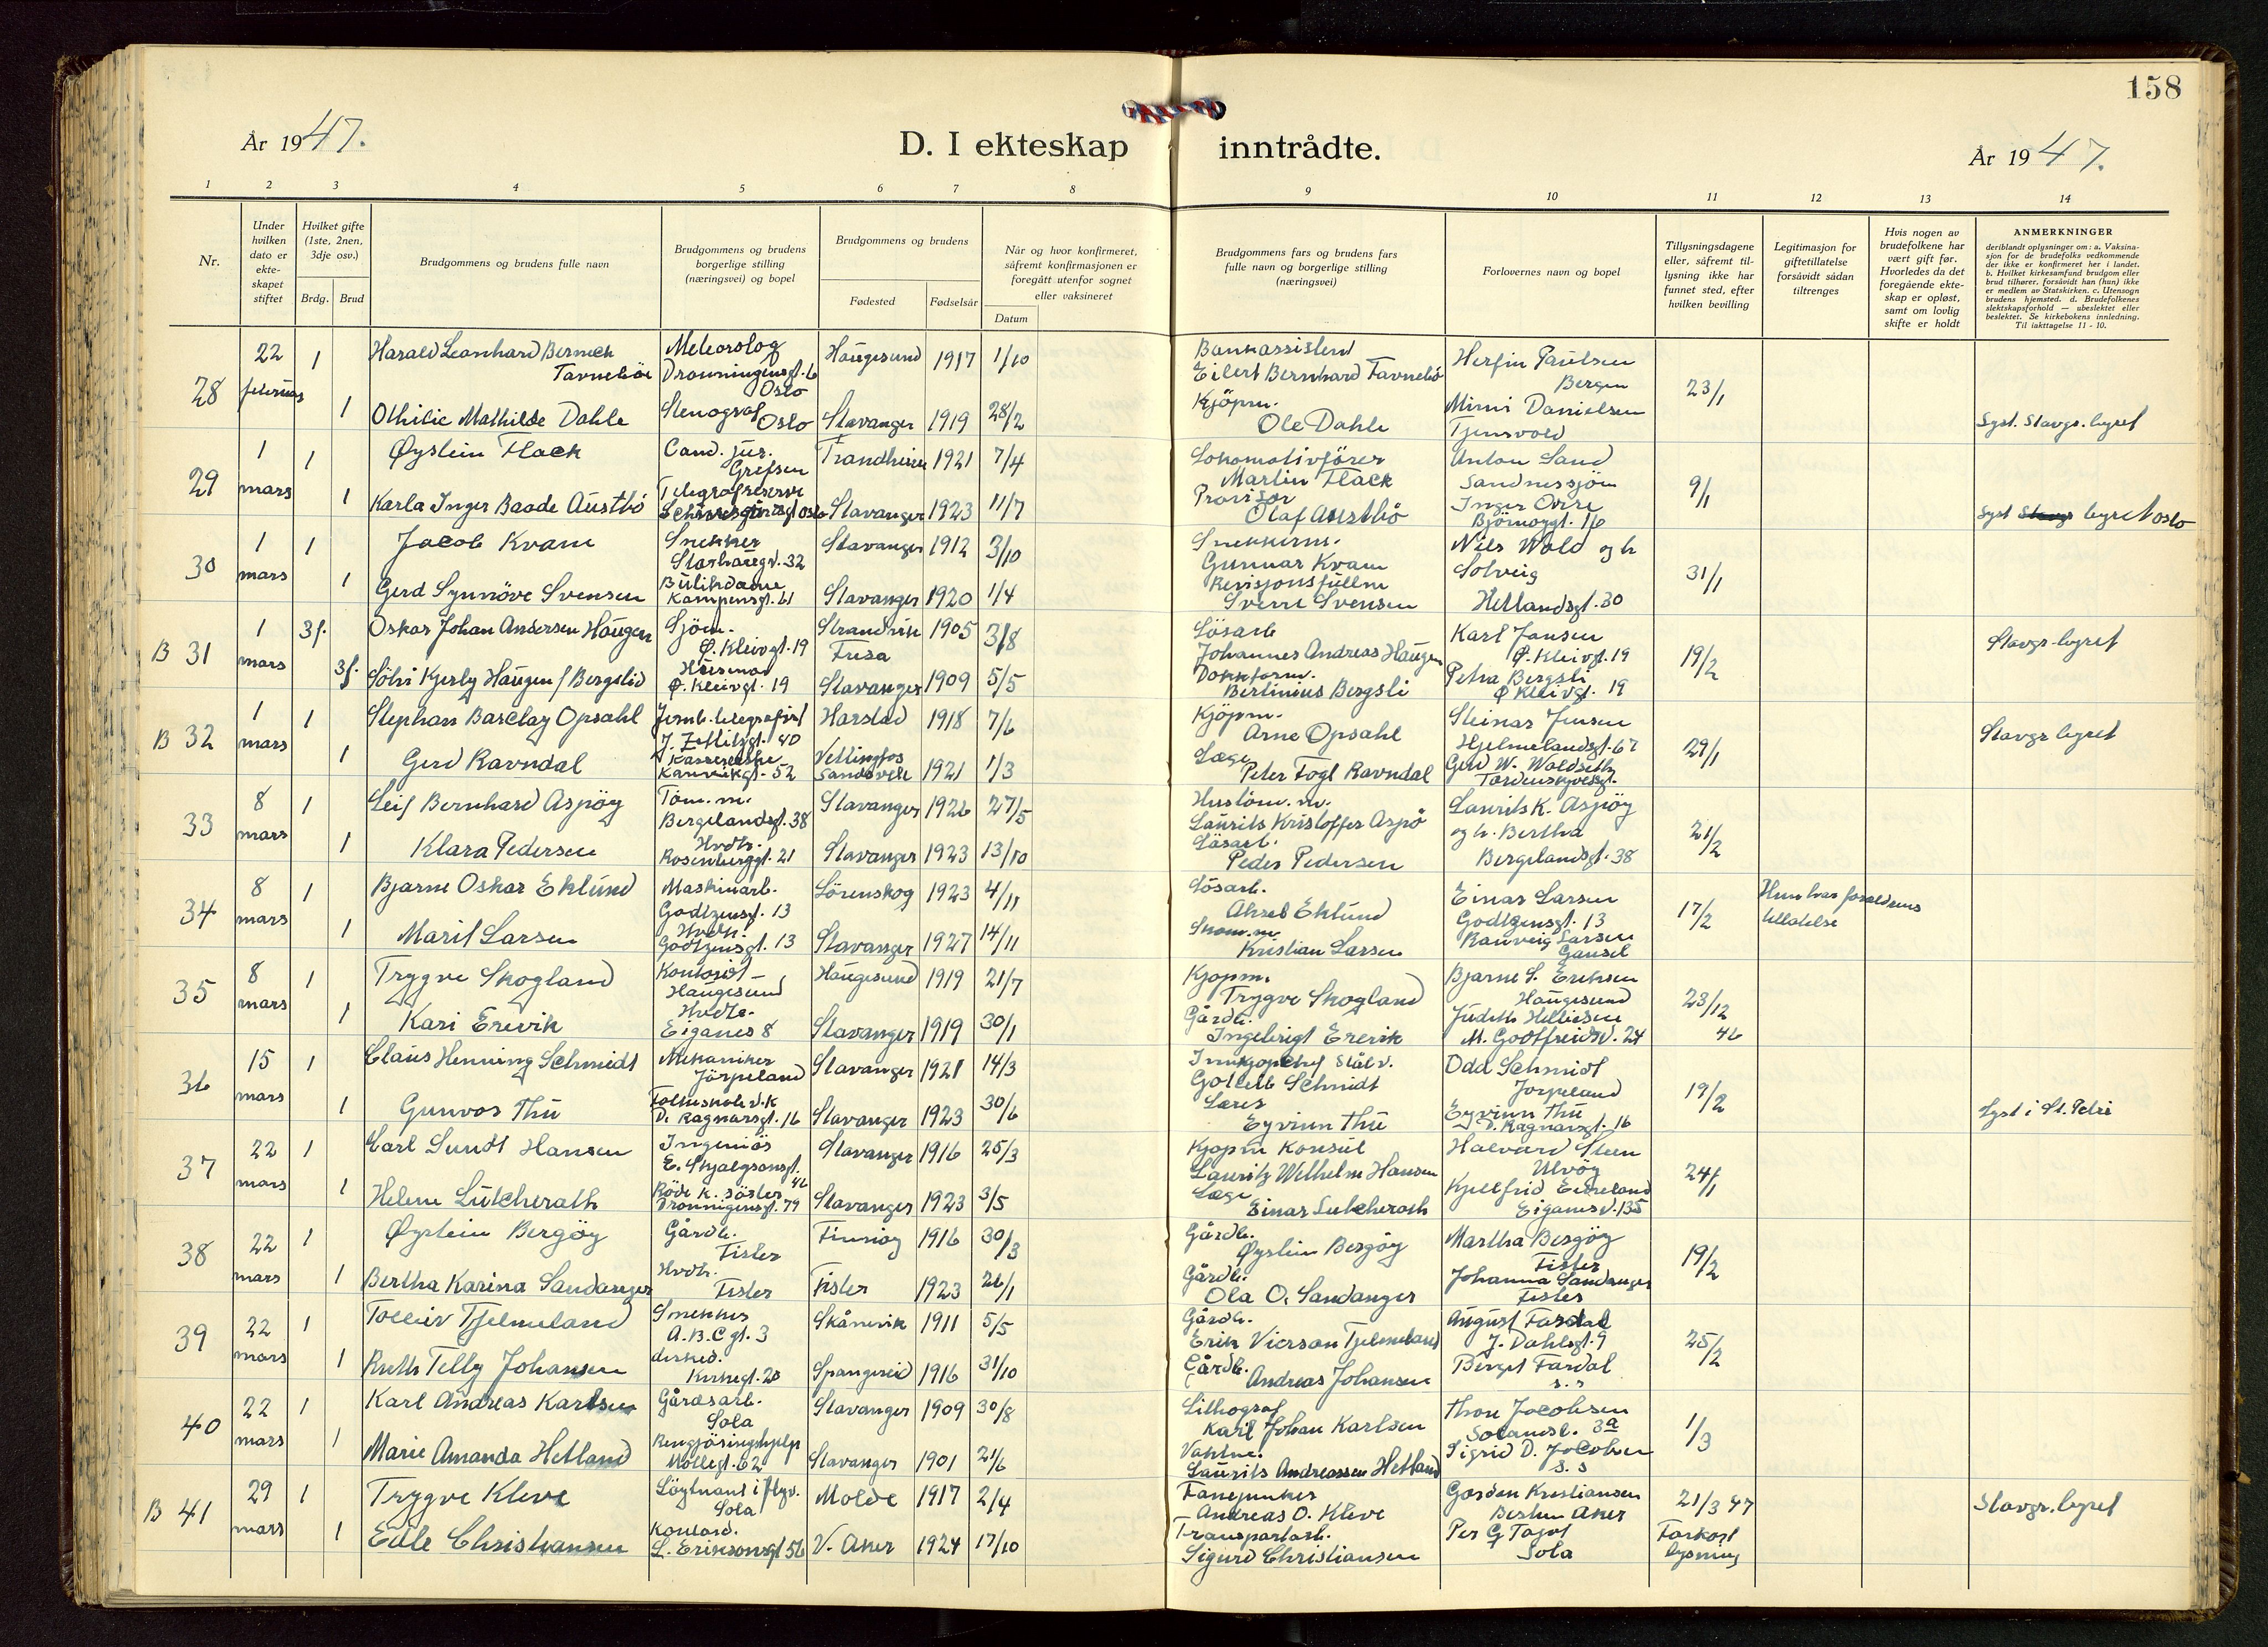 158
År 1947.
D. I ekteskap inntrådte.
År 1947.
1 2 3 4 5 6 7 8 9 10 11 12 13 14
Nr.
Under hvilken dato er ekte- skapet stiftet
Hvilket gifte (1ste, 2nen, 3dje osv.)
Brdg. Brud
Brudgommens og brudens fulle navn
Brudgommens og brudens borgerlige stilling (næringsvei) og bopel
Brudgommens og brudens
Fødested Fødselsår
Når og hvor konfirmeret, såfremt konfirmasjonen er foregått utenfor sognet eller vaksineret
Datum
Brudgommens fars og brudens fars fulle navn og borgerlige stilling (næringsvei)
Forlovernes navn og bopel
Tillysningsdagene eller, såfremt til- lysning ikke har funnet sted, efter hvilken bevilling
Legitimasjon for giftetillatelse forsåvidt sådan tiltrenges
Hvis nogen av brudefolkene har vært gift før. Hvorledes da det foregående ekte- skap er opløst, samt om lovlig skifte er holdt
ANMERKNINGER
deriblandt oplysninger om: a. Vaksina- sjon for de brudefolks vedkommende der ikke er konfirmeret her i landet. b. Hvilket kirkesamfund brudgom eller brud tilhører, forsåvidt han (hun) ikke er medlem av Statskirken. c. Utensogn brudens hjemsted. d. Brudefolkenes slektskapsforhold — ubeslektet eller beslektet. Se kirkebokens innledning. Til iakttagelse 11 - 10.
28 22 februar 1 Harald Leonhard Bernech Meteorolog Dronningensgt. 6 Oslo Haugesund 1917 1/10 Bankassistent Eilert Bernhard Herfin Paulsen Bergen 23/1
1 Othilie Mathilde Dahle Stenograf Oslo Stavanger 1919 28/2 Kjöpm. Ole Dahle Mimi Danielsen Tjensvold Lyst. Stavgr. byret
29 1 mars 1 Øystein Flack Cand. jur. Grefsen Trondheim 1921 7/4 Lokomotivförer Martin Flack Anton Sand Sandnessjöen 9/1
1 Karla Inger Baade Austbö Oslo Stavanger 1923 11/7 Provisor Olaf Austbö Inger Björnöygt. 16 Lyst byret Oslo
30 1 mars 1 Jacob Kvam Snekker 32 Stavanger 1912 3/10 Gunnar Kvam Nils Wold og h 31/1
1 Gerd Synnöve Svensen Butikdame Kampensgt. 61 Stavanger 1920 1/4 Revisjonsfullm Sverre Svensen Solveig Hetlandsgt. 30
B 31 1 mars 3f. Oskar Johan Andersen Haugen Sjöm. Ø. Kleivgt. 19 Strandvik Fusa 1905 3/8 Lösarb Johannes Andreas Haugen Karl Jansen Ø. Kleivgt. 19 19/2 Stavgr. byret
3f. Sölvi Kjersty Haugen f Bergslid Husmor Ø. Kleivgt. 19 Stavanger 1909 5/5 Bertinius Bergsli Petra Bergsli Ø Kleivgt. 19
B 32 1 mars 1 Stephan Barclay Opsahl Jernb. telegrafist J. Zetlitzgt. 40 Harstad 1918 7/6 Kjöpm. Arne Opsahl Steinar Jensen Hjelmelandsgt. 67 29/1 Stavgr byret
1 Gerd Ravndal Kannikgt. 52 1921 1/3 Læge Peter Fogt Ravndal Gerd W. Woldseth
33 8 mars 1 Leif Bernhard Aspöy Töm. m. Bergelandsgt. 38 Stavanger 1926 27/5 Hustöm. m. Laurits Kristoffer Aspö Laurits K. Aspöy og h. Bertha 21/2
1 Klara Pedersen Hvdtr. Rosenberggt. 21 Stavanger 1923 13/10 Lösarb. Peder Pedersen Bergelandsgt. 38
34 8 mars 1 Bjarne Oskar Eklund Maskinarb. Godtzensgt. 13 Lörenskog 1923 4/11 Lösarb. Aksel Eklund Einar Larsen Godtzensgt. 13 17/2 Hun har foreldrens tillatelse
1 Marit Larsen Hvdtr. Godtzensgt. 13 Stavanger 1927 14/11 Skom. m. Kristian Larsen Ranveig Larsen Gausel
35 8 mars 1 Trygve Skogland Kontorist — Haugesund Haugesund 1919 21/7 Kjöpm. Trygve Skogland Bjarne S. Eriksen Haugesund 23/12 46
1 Kari Erevik Hvdtr. Eiganes 8 Stavanger 1919 30/1 Gårdbr. Ingebrigt Erevik Judith M. Godtfreidsv. 24
36 15 mars 1 Claus Henning Schmidt Mekaniker Jörpeland Stavanger 1921 14/3 Innkjöpchef Stålv. Gotlieb Schmidt Odd Schmidt Jörpeland 19/2
1 Gunvor Thu D. Ragnarsgt. 16 Stavanger 1923 30/6 Lærer Eyvinn Thu Eyvinn Thu D. Ragnarsgt. 16 Lyst i St. Petri
37 22 mars 1 Carl Sundt Hansen Ingeniör E. Skjalgsonsgt. 46 Stavanger 1916 25/3 Kjöpm Konsul Lauritz Wilhelm Hansen Halvard Steen Ulvöy 24/1
1 Helene Lütcherath Röde k. söster Dronningensgt. 79 Stavanger 1923 3/5 Læge Einar Lutcherath Kjellfrid Eikeland Eiganesv. 135
38 22 mars 1 Øystein Bergöy Gårdbr. Fister Finnöy 1916 30/3 Gårdbr. Øystein Bergöy Martha Bergöy Fister 19/2
1 Bertha Karina Sandanger Hvdtr. Fister Fister 1923 26/1 Gårdbr. Ola O. Sandanger Johanna Sandanger Fister
39 22 mars 1 Tolleiv Tjelmeland Snekker A.B.C gt. 3 Skånevik 1911 5/5 Gårdbr. Erik Vierson Tjelmeland August Fardal J. Dahlsgt. 9 25/2
1 Ruth Telly Johansen Kirkegt. 20 Spangereid 1916 31/10 Gårdbr. Andreas Johansen Berget Fardal s. s
40 22 mars 1 Karl Andreas Karlsen Gårdsarb. Sola Stavanger 1909 30/8 Lithograf Karl Johan Karlsen Thore Jacobsen Solandsb. 3a 1/3
1 Marie Amanda Hetland Rengjöringshjelp Möllegt. 62 Stavanger 1901 21/6 Laurits Andreassen Hetland Sigrid D. Jacobsen s. s
B 41 29 mars 1 Trygve Kleve Löytnant i flyv. Sola Molde 1917 2/4 Fanejunker Andreas O. Kleve Gordon Kristiansen Bestum Aker 21/3 47 Forkort lysning Stavgr. byret
1 Edle Christiansen Kontord. L. Eriksonsgt 56 V. Aker 1924 17/10 Transportarb. Sigurd Christiansen Per G Sola